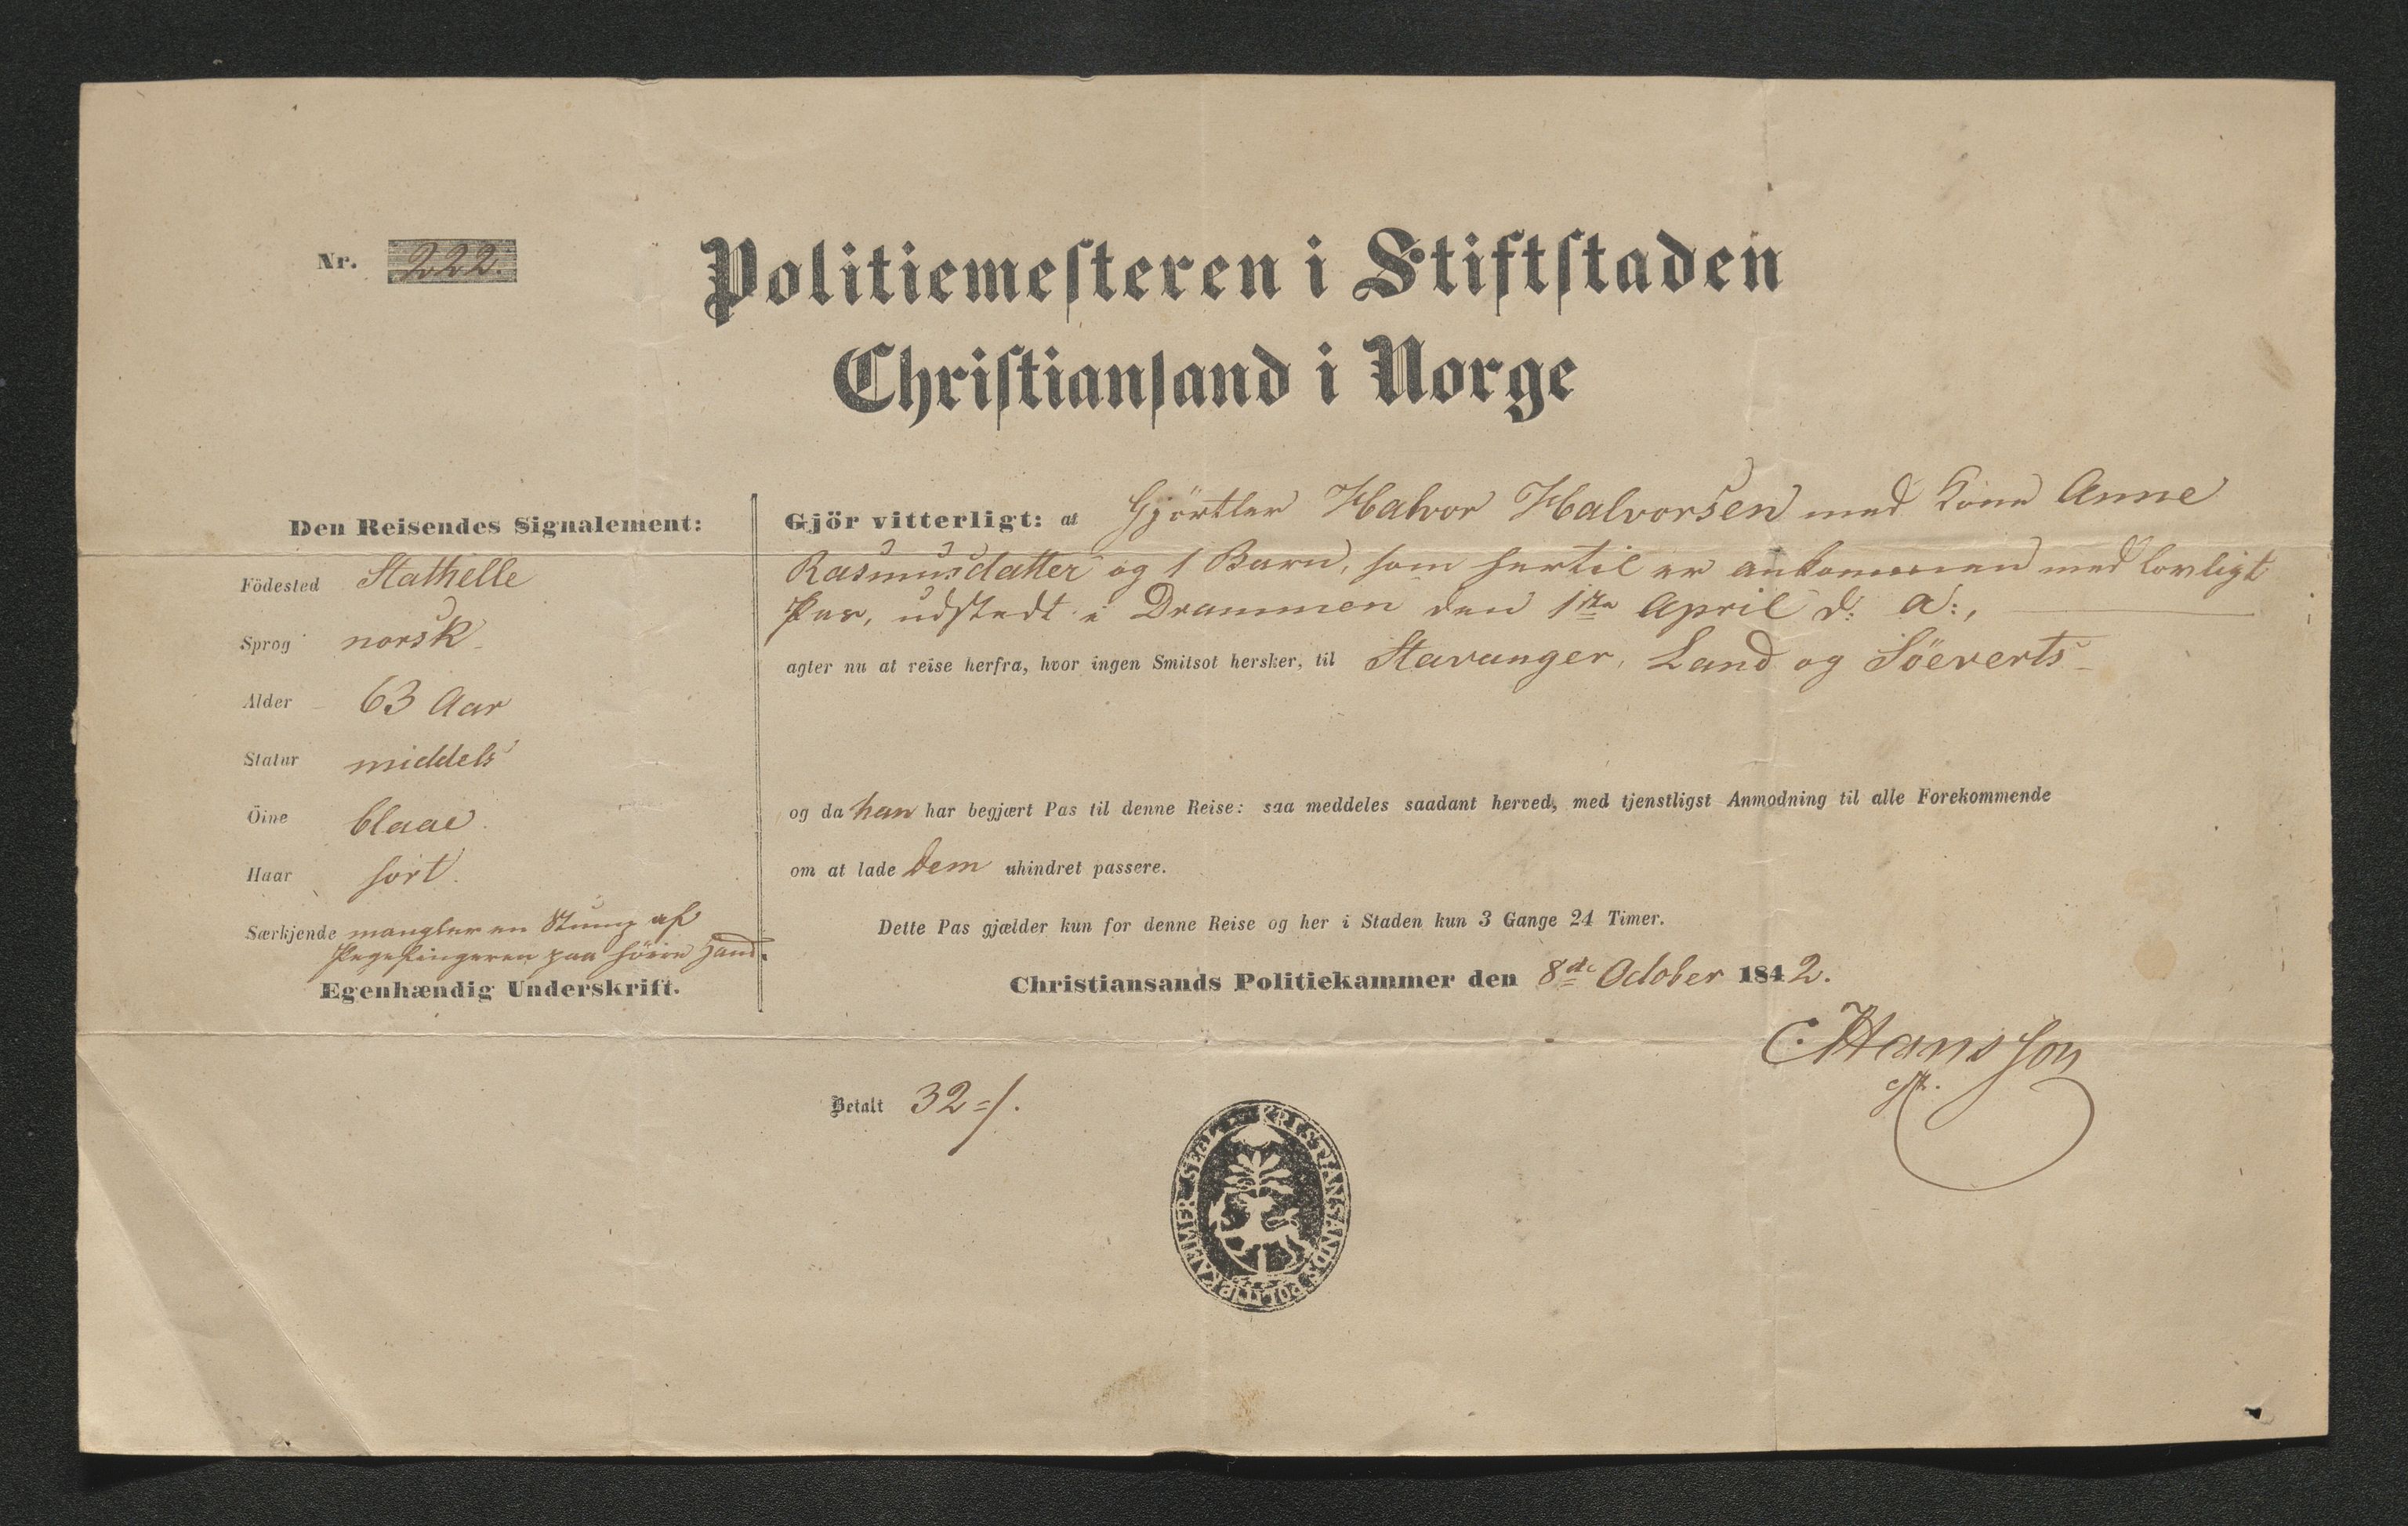 Nr. 222.
Politiemesteren i Stiftstaden
Christiansand i Norge
Den Reisendes Signalement:
Födested Stathelle
Sprog norsk
Alder 63 Aar
Statur middels
Öine blaae
Haar sort.
Særkjende mangler en Stump af
Pegefingeren paa höire Haand.
Egenhændig Underskrift.
Gjör vitterligt: at Gjörtler Halvor Halvorsen med Kone Anne
Rasmusdatter og 1 Barn, som hertil er ankommen med lovligt
Pas, udstedt i Drammen den 1ste April d: A:,
agter nu at reise herfra, hvor ingen Smitsot hersker, til Stavanger, Land og Söeverts
og da han har begjært Pas til denne Reise: saa meddeles saadant herved, med tjenstligst Anmodning til alle Forekommende
om at lade dem uhindret passere.
Dette Pas gjælder kun for denne Reise og her i Staden kun 3 Gange 24 Timer.
Christiansands Politiekammer den 8de October 1842.
C Hansson
cst.
Betalt 32 ß.
KRISTIANSANDS POLITIEKAMMER SEGL